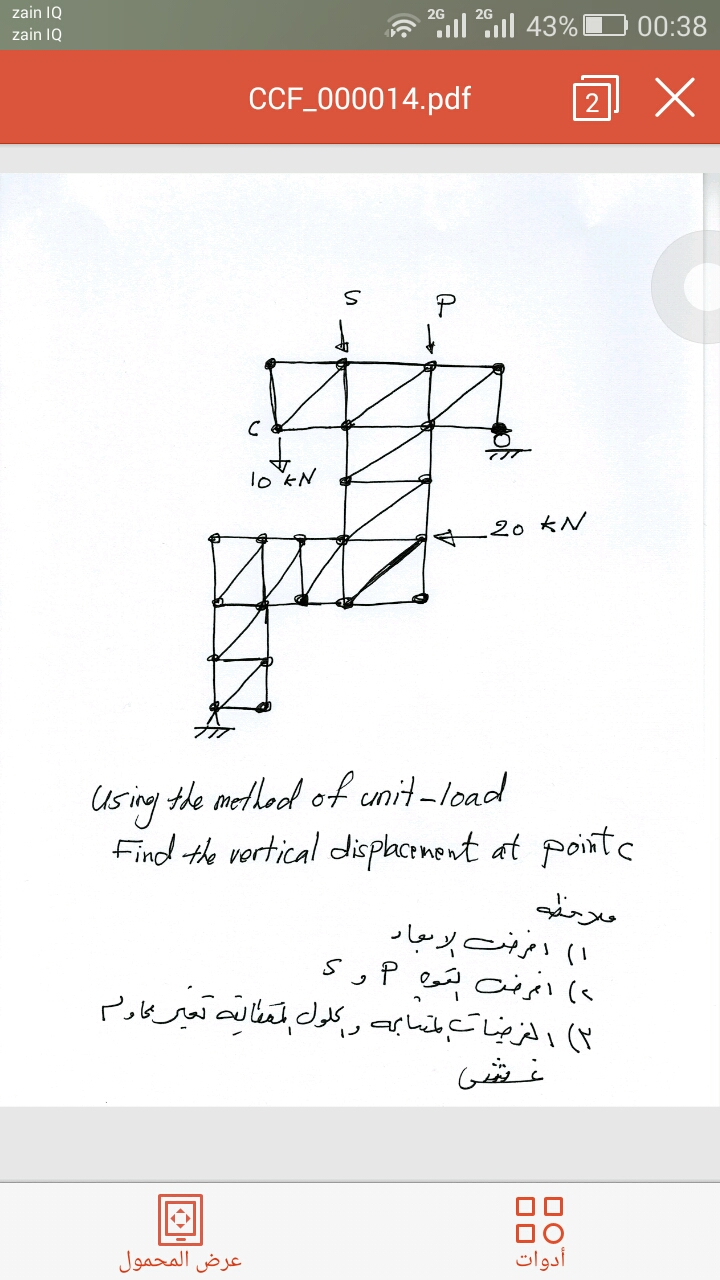 zain IQ
zain IQ
2G 2G 43% 00:38
CCF_000014.pdf
2
S P
C
10 kN
20 kN
Using the method of unit-load
Find the vertical displacement at point c
ملاحظه
١) افرض الابعاد
٢) افرض القوه P و S
٣) الفرضيات المتشابهه والحلول المتطابقه تعتبر محاولة
غش
عرض المحمول
أدوات